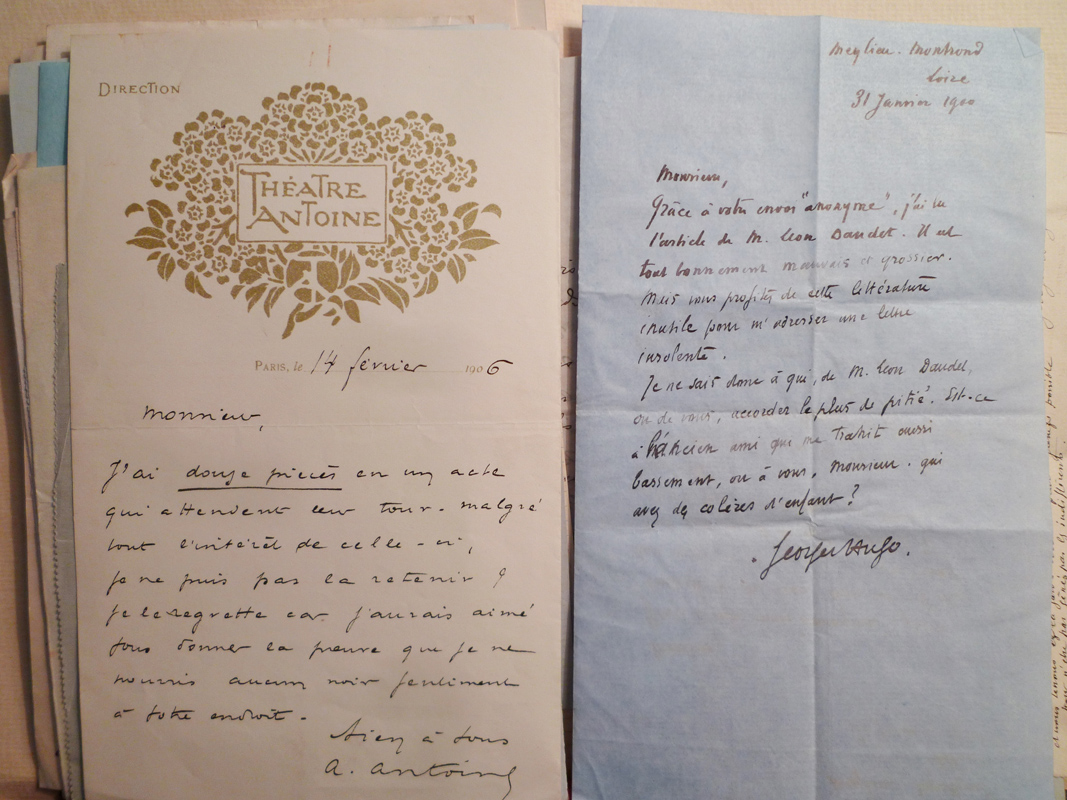 DIRECTION
THÉATRE
ANTOINE
PARIS, le 14 février 1906
Monsieur,
J'ai douze pièces en un acte
qui attendent leur tour. malgré
tout l'intérêt de celle-ci,
je ne puis pas la retenir &
je le regrette car j'aurais aimé
vous donner la preuve que je ne
nourris aucun noir sentiment
à votre endroit.
Bien à vous
A. Antoine
Meylieu. Montrond
Loire
31 Janvier 1900
Monsieur,
Grâce à votre envoi "anonyme", j'ai lu
l'article de M. Leon Daudet. Il est
tout bonnement mauvais et grossier.
Mais vous profitez de cette littérature
inutile pour m'adresser une lettre
insolente.
Je ne sais donc à qui, de M. Leon Daudet,
ou de vous, accorder le plus de pitié. Est-ce
à l'ancien ami qui me trahit aussi
bassement, ou à vous, Monsieur. qui
avez des colères d'enfant?
Georges Hugo.